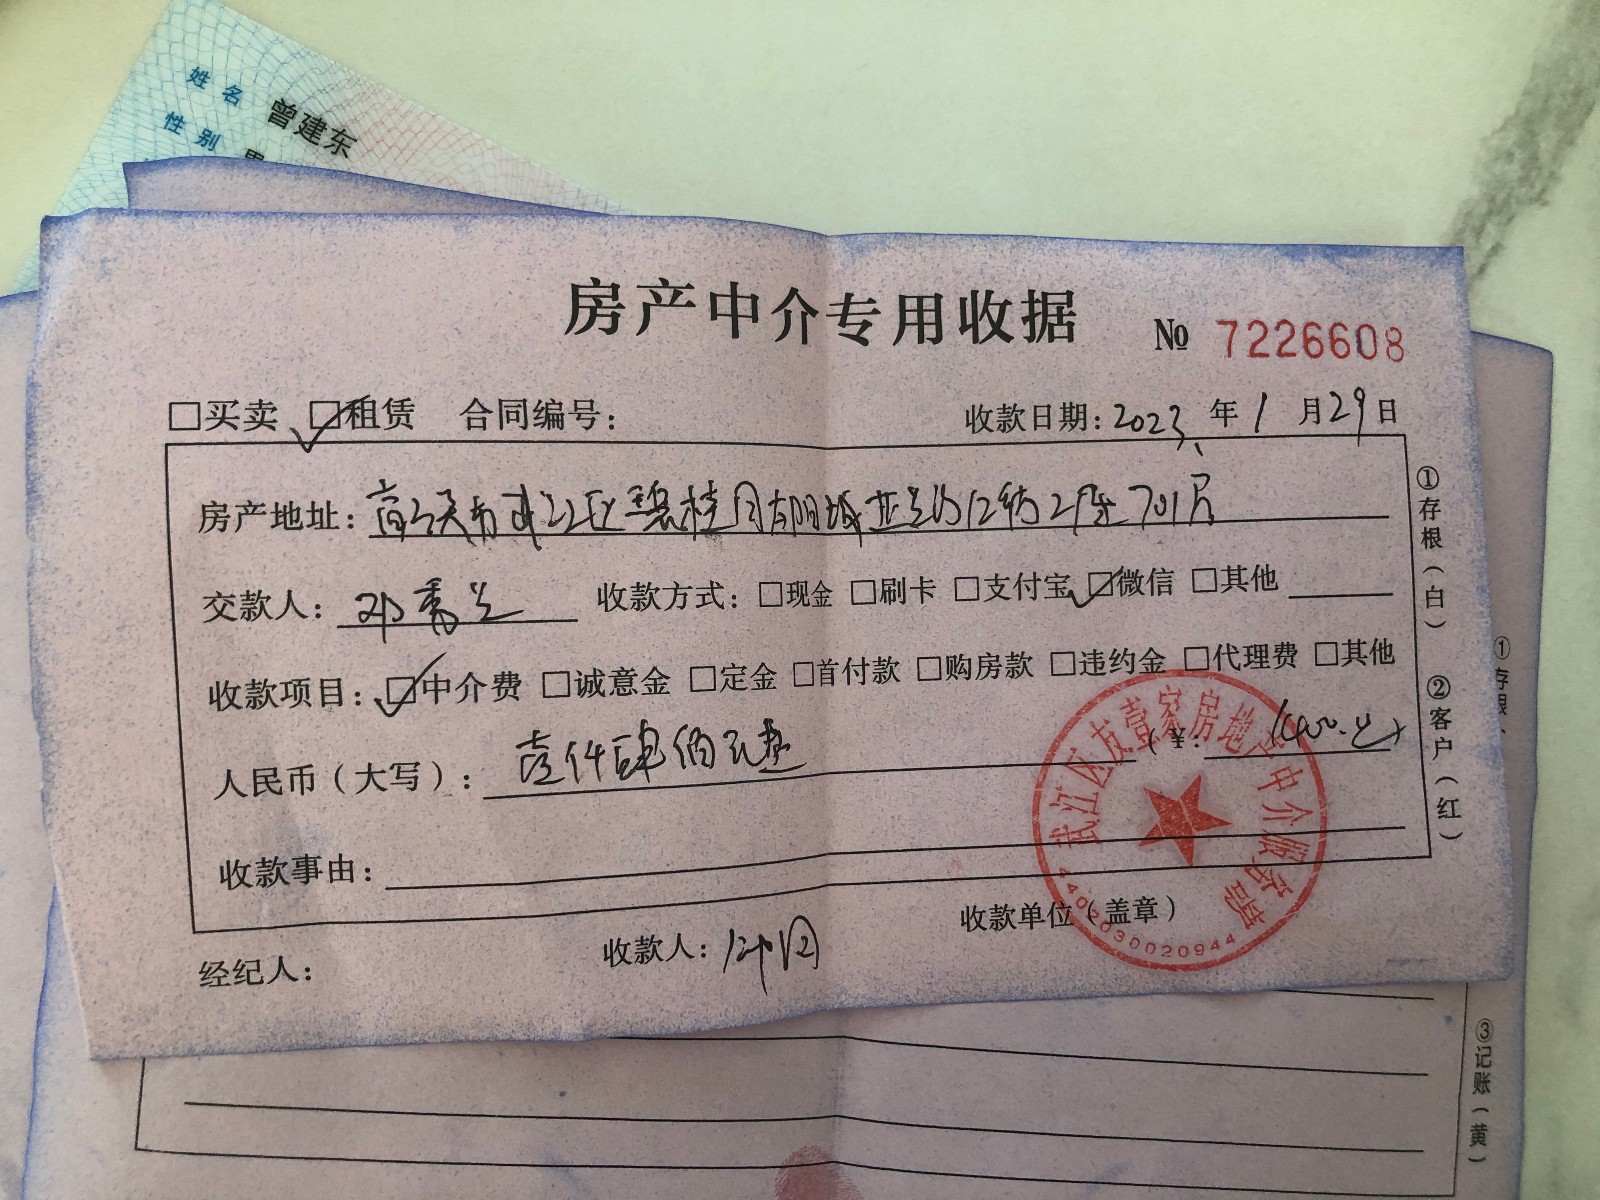 姓名 曾建东
性别 男
房产中介专用收据
№ 7226608
□买卖 ☑租赁 合同编号：
收款日期：2023年1月29日
房产地址：武江区碧桂园太阳城 12街2座701房
交款人：邓秀兰 收款方式：□现金 □刷卡 □支付宝 ☑微信 □其他
收款项目：☑中介费 □诚意金 □定金 □首付款 □购房款 □违约金 □代理费 □其他
人民币（大写）：壹仟肆佰元整 （¥：1400.元）
收款事由：
经纪人：
收款人：
收款单位（盖章）
武江区友壹家房地产中介服务部
4402030020944
①存根（白）
②客户（红）
①存根、
③记账（黄）